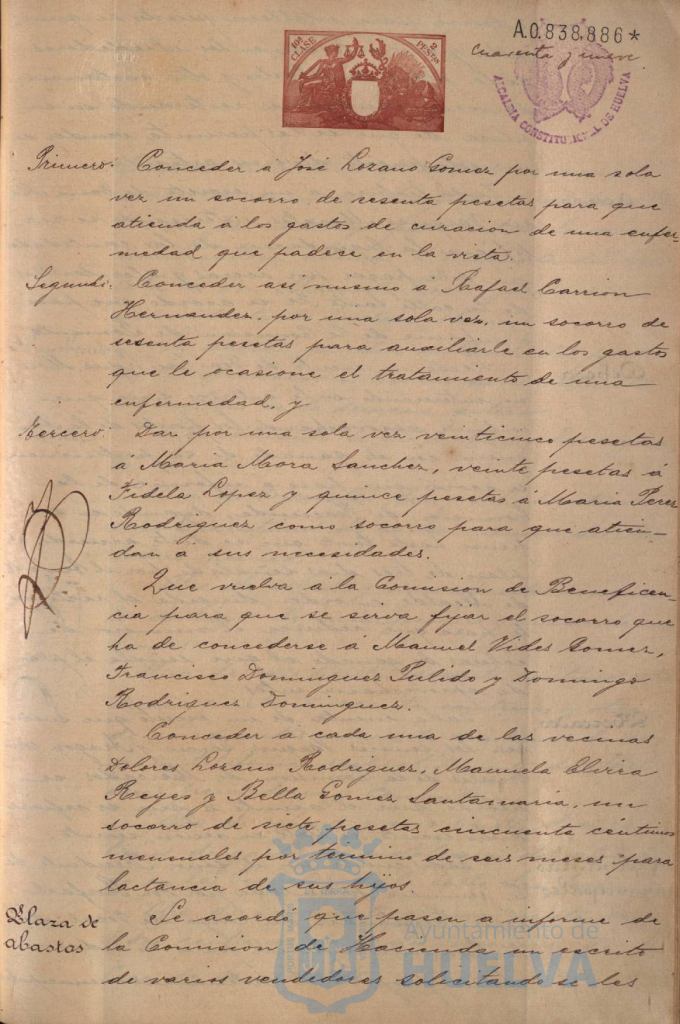 10ª CLASE 2 PESETAS
A.0.838,886*
Cuarenta y nueve
ALCALDIA CONSTITUCIONAL DE HUELVA
Primero. Conceder á José Lozano Gomez por una sola
vez un socorro de sesenta pesetas para que
atienda á los gastos de curacion de una enfer-
medad que padece en la vista.
Segundo. Conceder asi mismo á Rafael Carrion
Hernandez, por una sola vez, un socorro de
sesenta pesetas para auxiliarle en los gastos
que le ocasione el tratamiento de una
enfermedad, y
Tercero. Dar por una sola vez veinticinco pesetas
á Maria Mora Sanchez, veinte pesetas á
Fidela Lopez y quince pesetas á Maria Perez
Rodriguez como socorro para que atien-
dan á sus necesidades.
Que vuelva á la Comision de Beneficen-
cia para que se sirva fijar el socorro que
ha de concederse á Manuel Vides Gomez,
Francisco Dominguez Pulido y Domingo
Rodriguez Dominguez.
Conceder a cada una de las vecinas
Dolores Lozano Rodriguez, Manuela Elvira
Reyes y Bella Gomez Santamaria, un
socorro de siete pesetas cincuenta céntimos
mensuales por término de seis meses para
lactancia de sus hijos.
Plaza de
abastos
Se acordó que pasen a informe de
la Comision de Hacienda un escrito
de varios vendedores solicitando se les
Ayuntamiento de
HUELVA